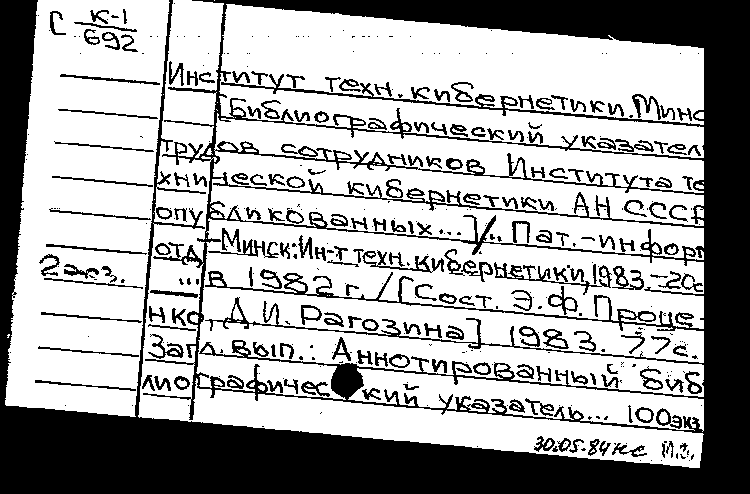 С К-1
692
Институт техн. кибернетики. Минс
[Библиографический указател
трудов сотрудников Института те
хнической кибернетики АН СССР
опубликованных...]/... Пат.-информ
отд.-Минск: Ин-т техн. кибернетики, 1983.-20с
2 экз. ... в 1982 г. / [Сост. Э.Ф. Проце-
нко, Д.И. Рагозина] 1983. 77с.
Загл. вып.: Аннотированный биб
лиографический указатель... 100экз
30.05.84